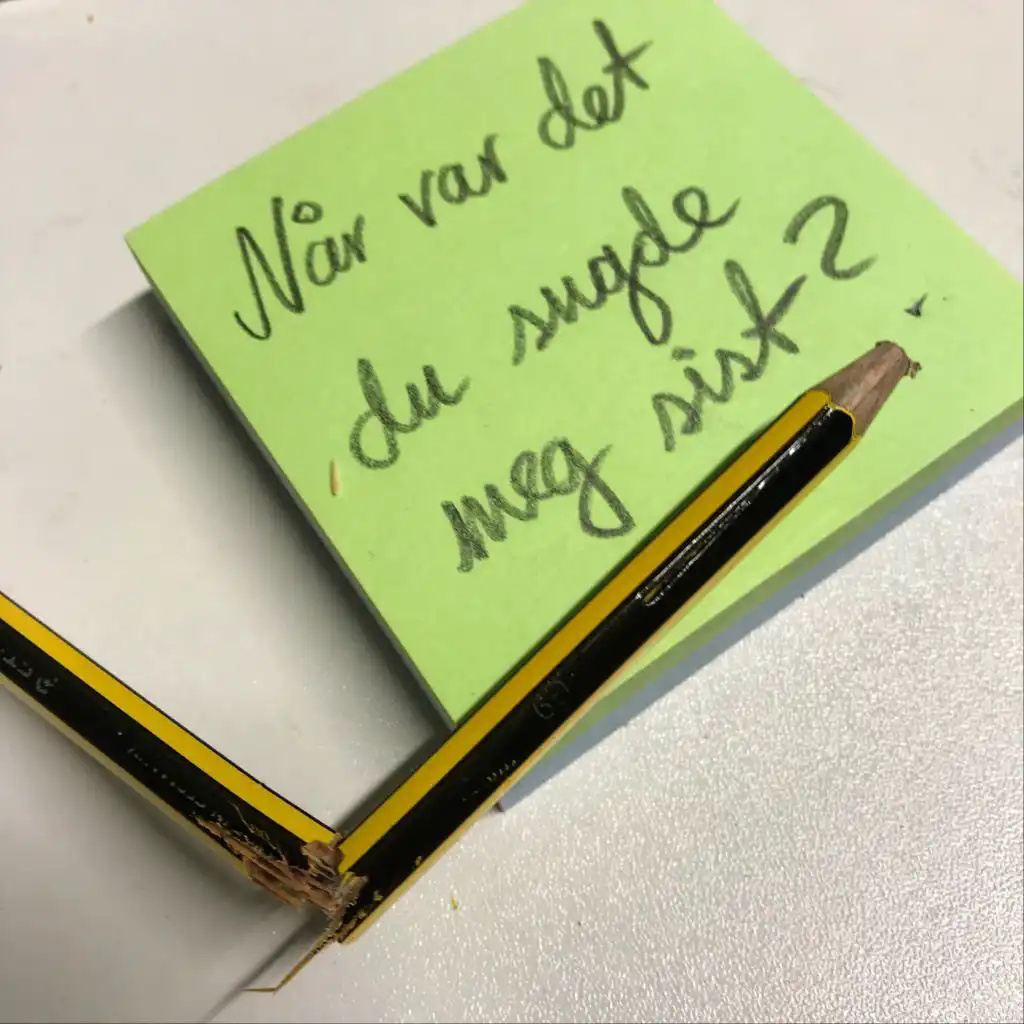 Når var det
du sugde
meg sist?